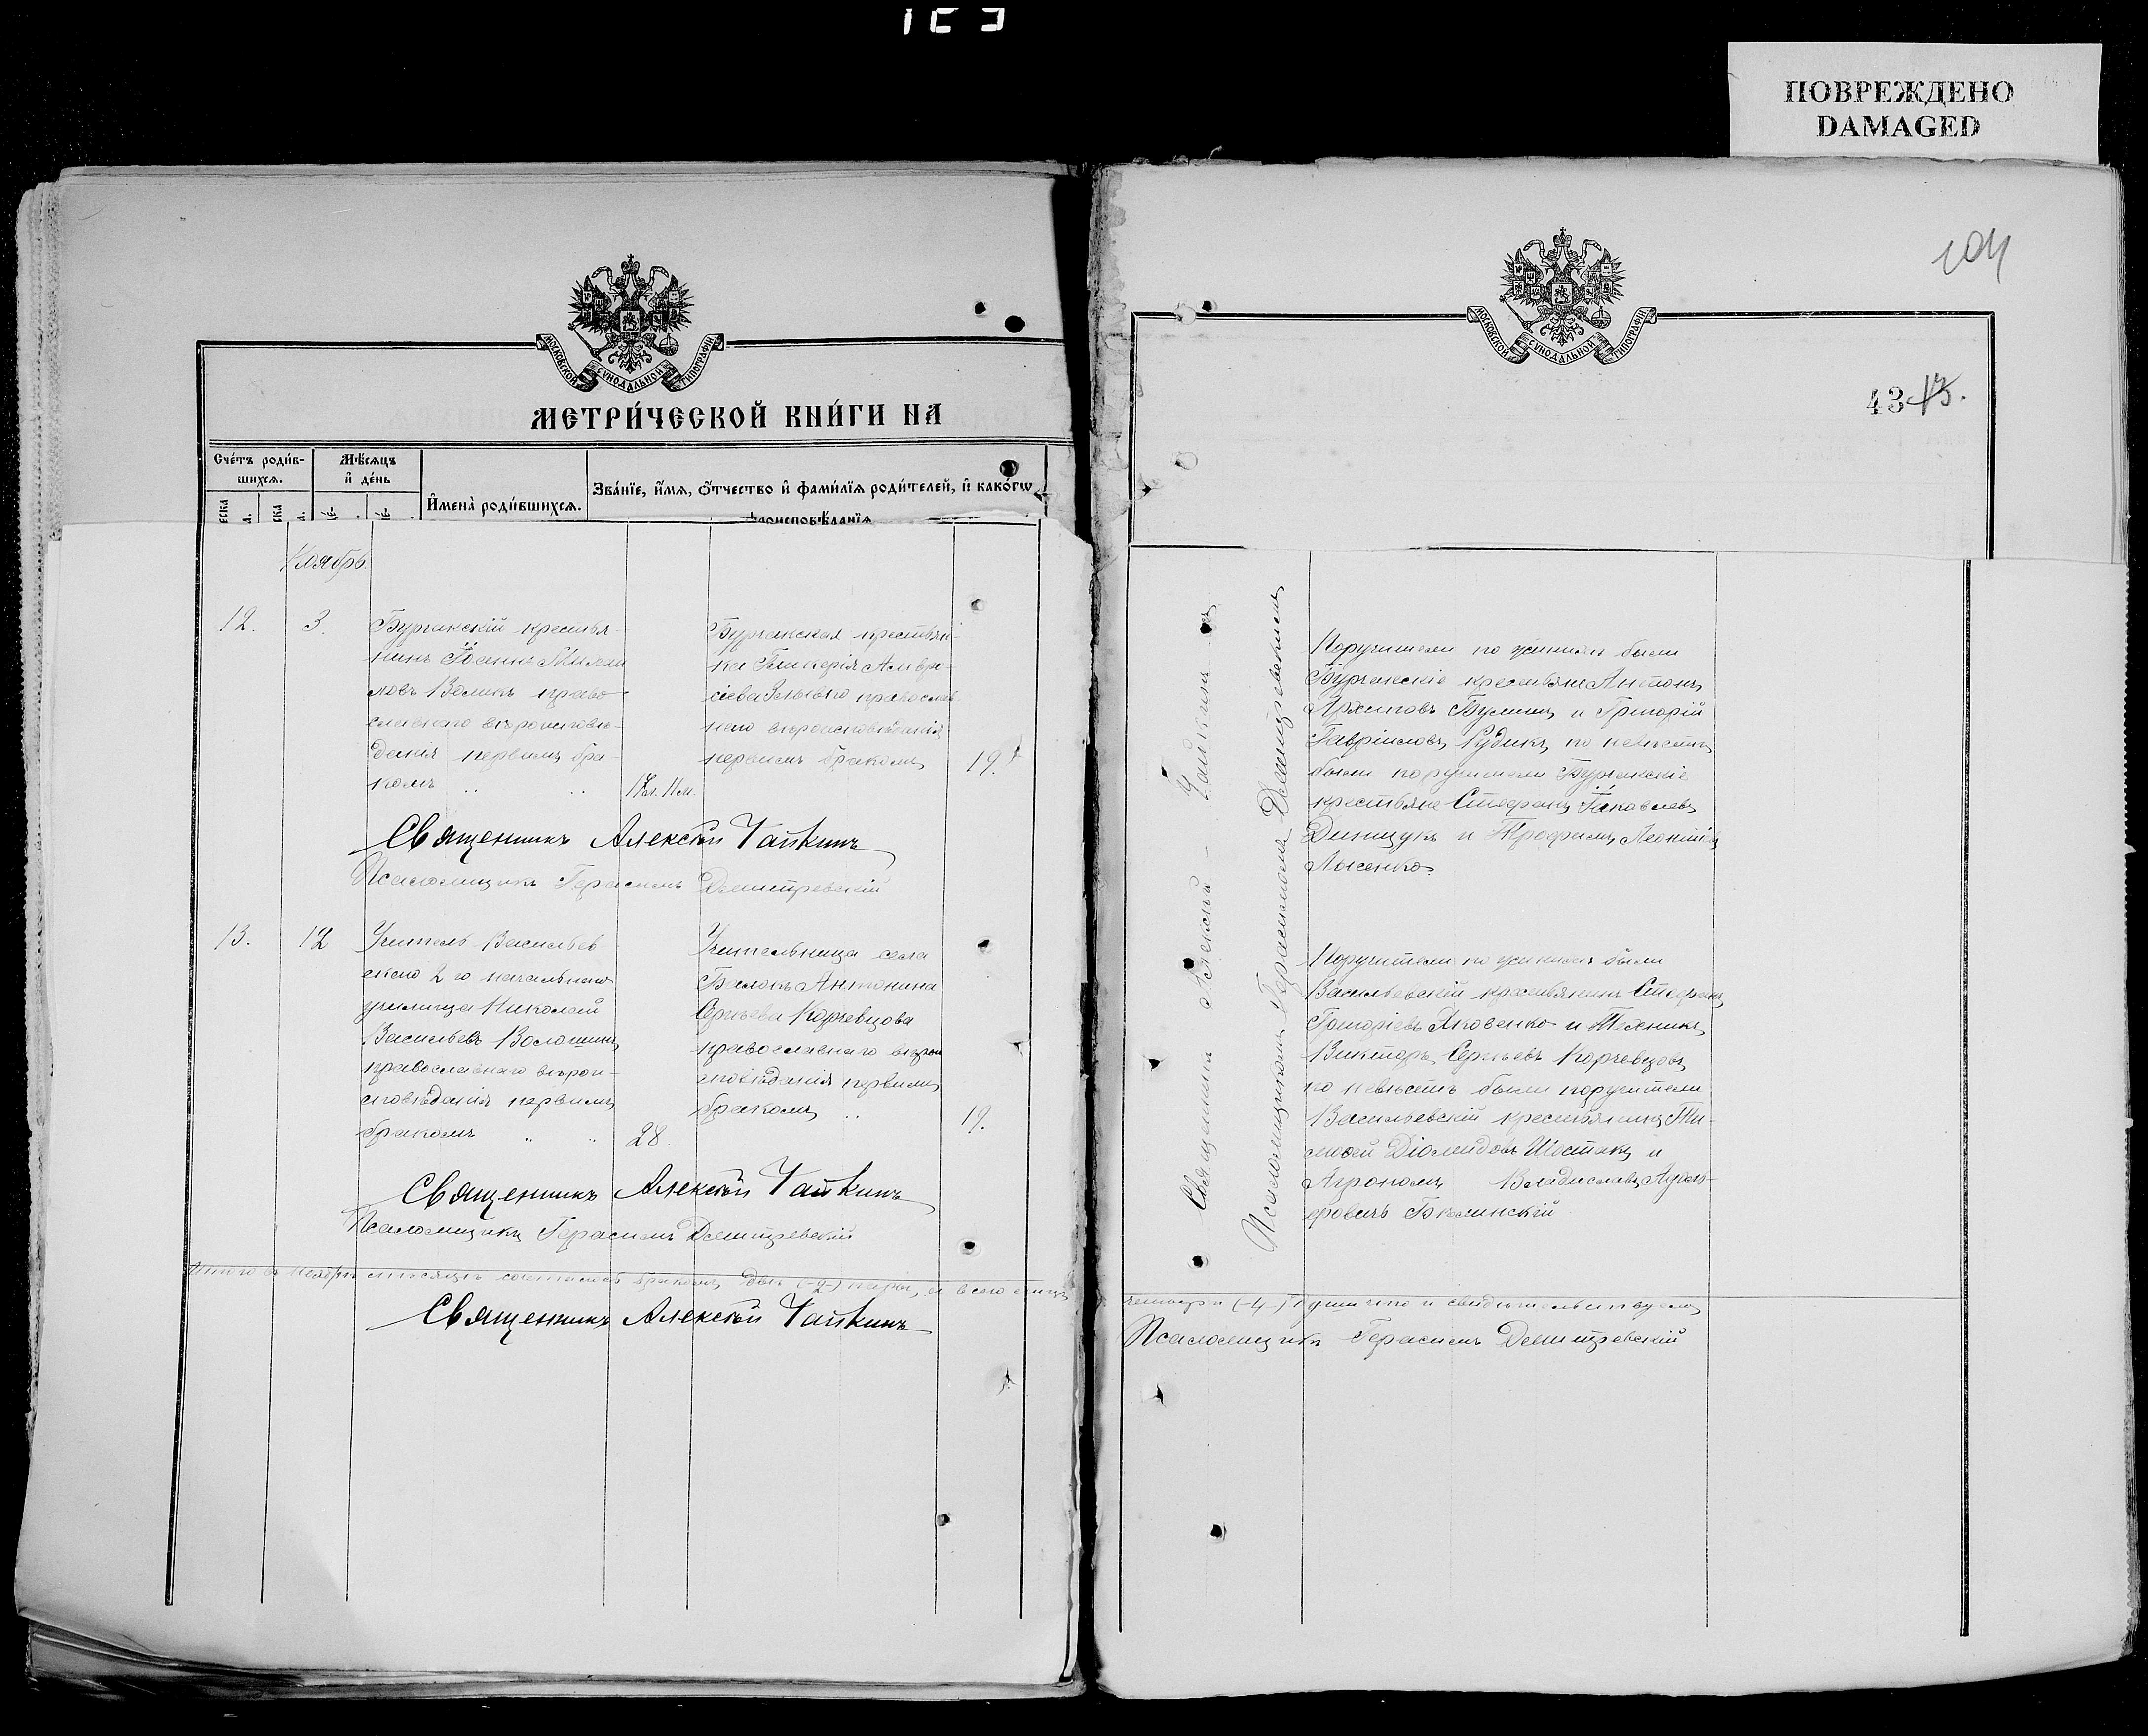 ПОВРЕЖДЕНО
DAMAGED
104
МОСКОВСКОЙ СѴНОДАЛЬНОЙ ТИПОГРАФІИ
МЕТРИ́ЧЕСКОЙ КНИ́ГИ НА
Сче́тъ роди́в-
шихсѧ.
Мѣ́сѧцъ
и҆ де́нь
И҆мена̀ роди́вшихсѧ.
Зва́нїе, и҆́мѧ, ѻ҆́тчество и҆ фами́лїѧ роди́телей, и҆ како́гѡ
Ноябрь.
12. 3.
Бургакскій крестья-
нинъ Іоаннъ Михаи
ловъ Великъ право-
славнаго вѣроисповѣ-
данія первымъ бра-
комъ
18 л. 11 м.
Бургакская крестьян-
ка Гликерія Амвро-
сіева православ-
наго вѣроисповѣданія
первымъ бракомъ
19.
Священникъ Алексѣй Чайкинъ
Псаломщикъ Герасимъ Дмитревскій
13. 12
Учитель Васильев-
скаго 2го начальнаго
училища Николай
Васильевъ Волошинъ
православнаго вѣрои-
сповѣданія первымъ
бракомъ
28.
Учительница села
Балокъ Антонина
Сергѣева Корчевцова
православнаго вѣрои
сповѣданія первымъ
бракомъ
19.
Священникъ Алексѣй Чайкинъ
Псаломщикъ Герасимъ Дмитревскій
Итого въ Ноябрѣ мѣсяцѣ сочеталось бракомъ двѣ (-2-) пары, а всего лицъ
Священникъ Алексѣй Чайкинъ
МОСКОВСКОЙ СѴНОДАЛЬНОЙ ТИПОГРАФІИ
43
Священникъ Алексѣй Чайкинъ
Псаломщикомъ Герасимомъ Дмитревскимъ
Поручители по женихѣ были
Бургакскіе крестьяне Антонъ
Архиповъ и Григорій
Гавріиловъ Рудикъ, по невѣстѣ
были поручители Бургакскіе
крестьяне Стефанъ Іаковлевъ
Динщукъ и Трофимъ
Лысенко.
Поручители по женихѣ были
Васильевскій крестьянинъ Стефанъ
Григоріевъ Яковенко и Техникъ
Викторъ Сергѣевъ Корчевцовъ
по невѣстѣ были поручители
Васильевскій крестьянинъ Ти-
мофей Діомидовъ Шостакъ и
Агрономъ Владиславъ
еровичъ Бѣлинскій
четыре (-4-) душ что и свидѣтельствуемъ
Псаломщикъ Герасимъ Дмитревскій